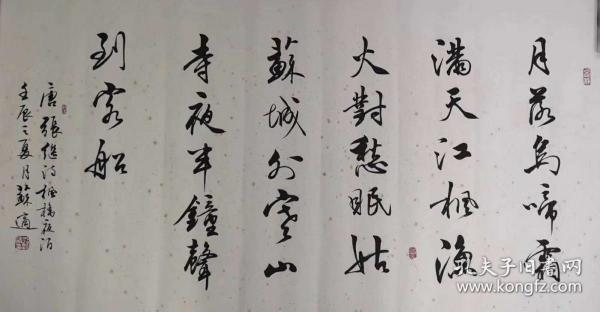 月落烏啼霜
滿天江楓漁
火對愁眠姑
蘇城外寒山
寺夜半鐘聲
到客船
唐張継詩楓橋夜泊
壬辰之夏月蘇適
孔夫子旧書网
www.kongfz.com